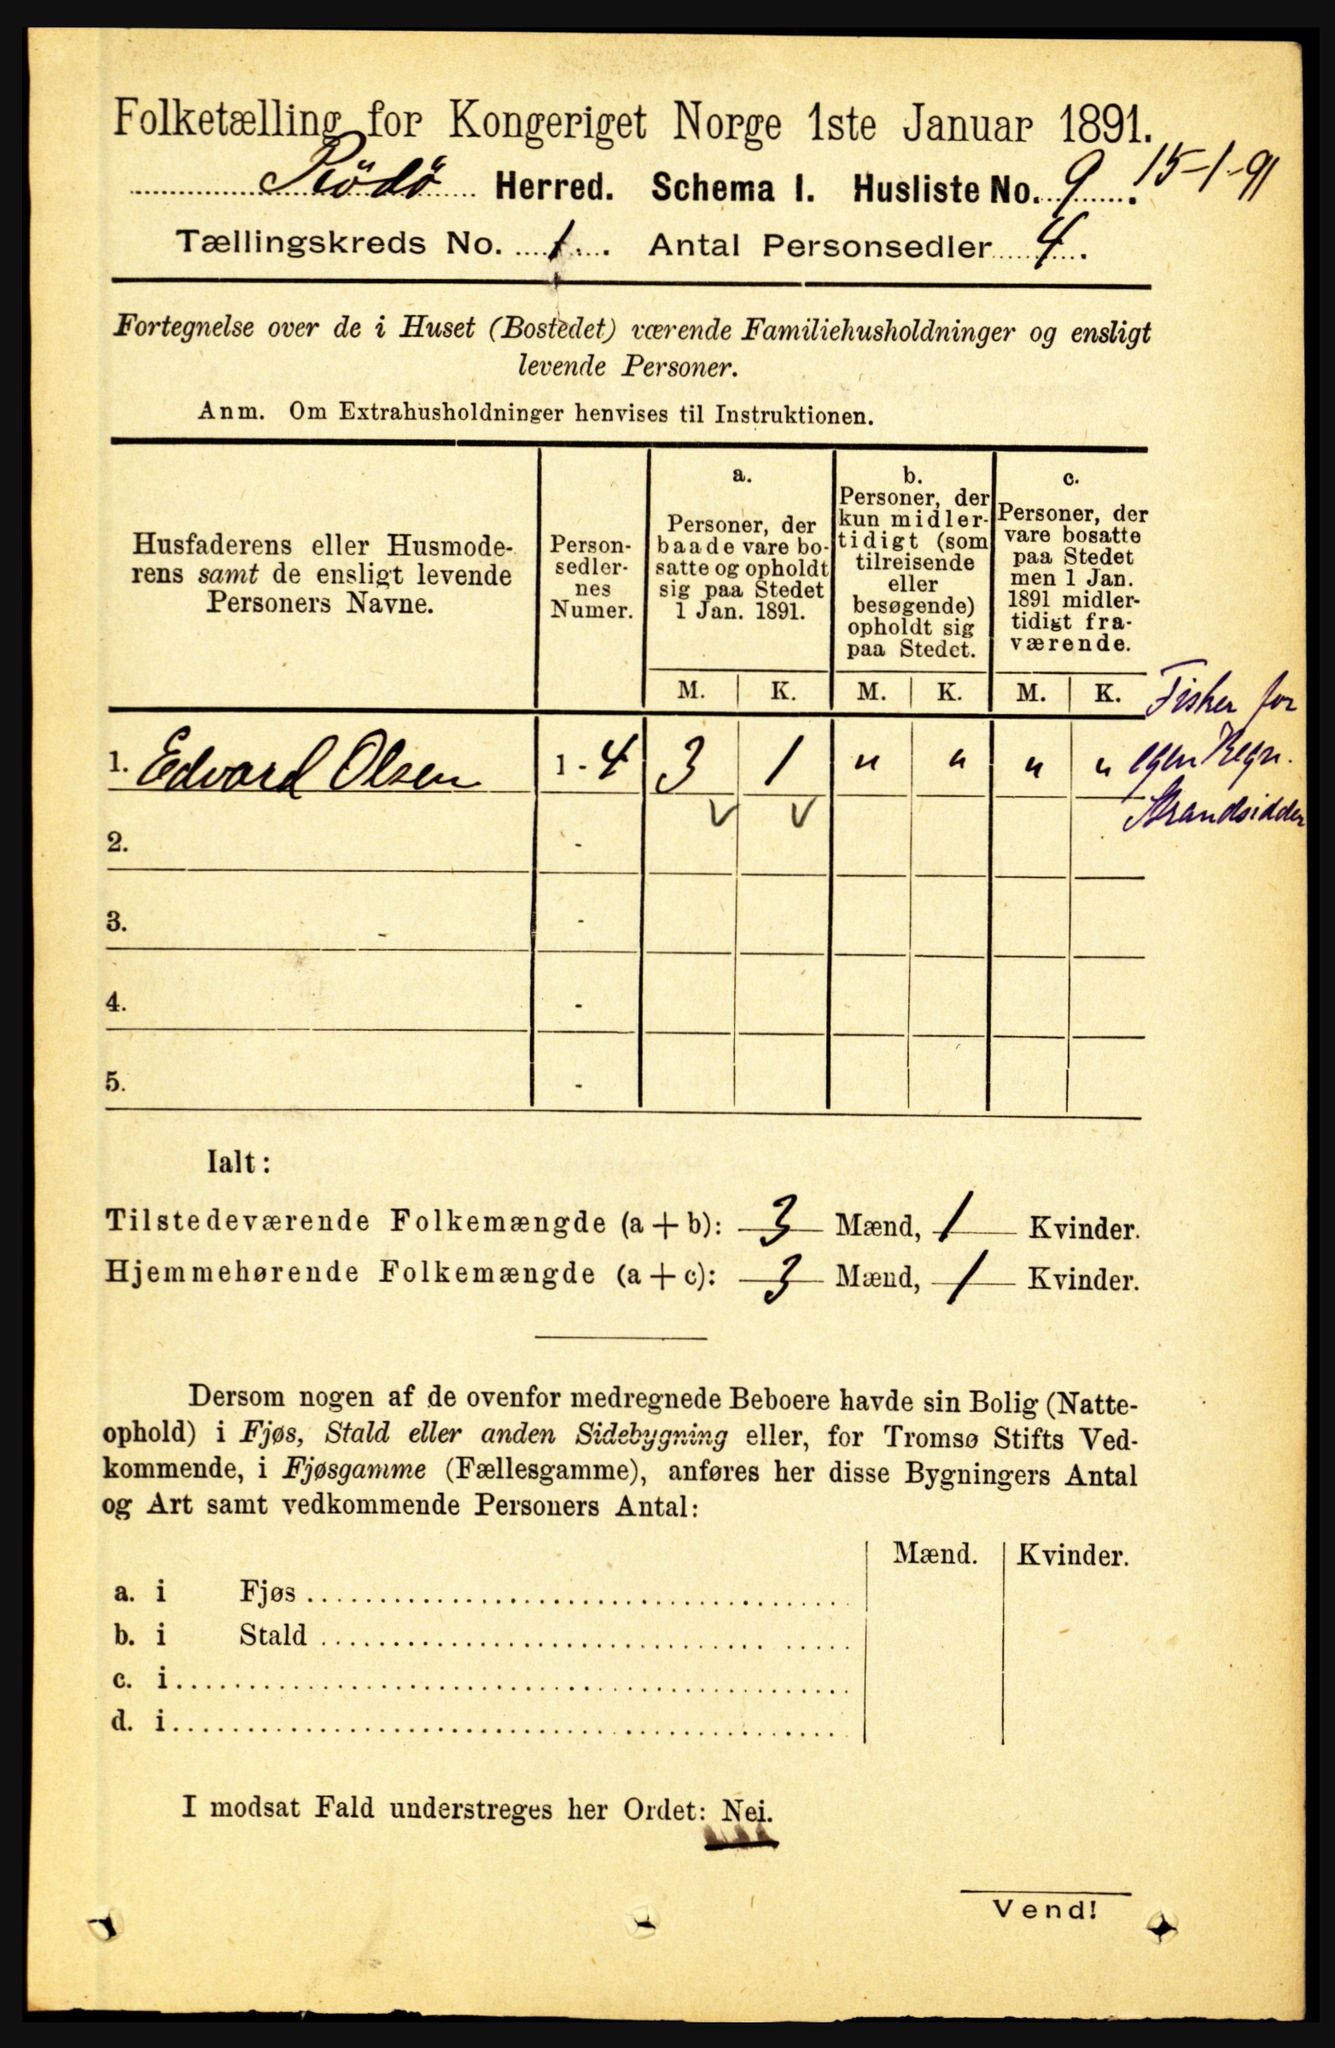 Folketælling for Kongeriget Norge 1ste Januar 1891.
Rödö Herred. Schema 1. Husliste No. 9. 15-1-91
Tællingskreds No. 1. Antal Personsedler 4.
Fortegnelse over de i Huset (Bostedet) værende Familiehusholdninger og ensligt
levende Personer.
Anm. Om Extrahusholdninger henvises til Instruktionen.
Husfaderens eller Husmode-
rens samt de ensligt levende
Personers Navne.
Person-
sedler-
nes
Numer.
a.
Personer, der
baade vare bo-
satte og opholdt
sig paa Stedet
1 Jan. 1891.
b.
Personer, der
kun midler-
tidigt (som
tilreisende
eller
besøgende)
opholdt sig
paa Stedet.
c.
Personer, der
vare bosatte
paa Stedet
men 1 Jan.
1891 midler-
tidigt fra-
værende.
M. K. M. K. M. K.
Fisker for
egen Regn.
Strandsidder
1. Edvard Olsen 1 - 4 3 1 " " " "
2. -
3. -
4. -
5. -
Ialt:
Tilstedeværende Folkemængde (a + b): 3 Mænd, 1 Kvinder.
Hjemmehørende Folkemængde (a + c): 3 Mænd, 1 Kvinder.
Dersom nogen af de ovenfor medregnede Beboere havde sin Bolig (Natte-
ophold) i Fjøs, Stald eller anden Sidebygning eller, for Tromsø Stifts Ved-
kommende, i Fjøsgamme (Fællesgamme), anføres her disse Bygningers Antal
og Art samt vedkommende Personers Antal:
Mænd. Kvinder.
a. i Fjøs
b. i Stald
c. i
d. i
I modsat Fald understreges her Ordet: Nei.
Vend!